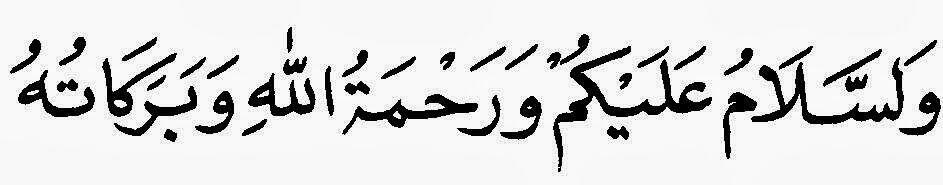 وَلسَّلَامُ عَلَيْكُمْ وَرَحْمَةُ اللّٰهِ وَبَرَكَاتُهُ